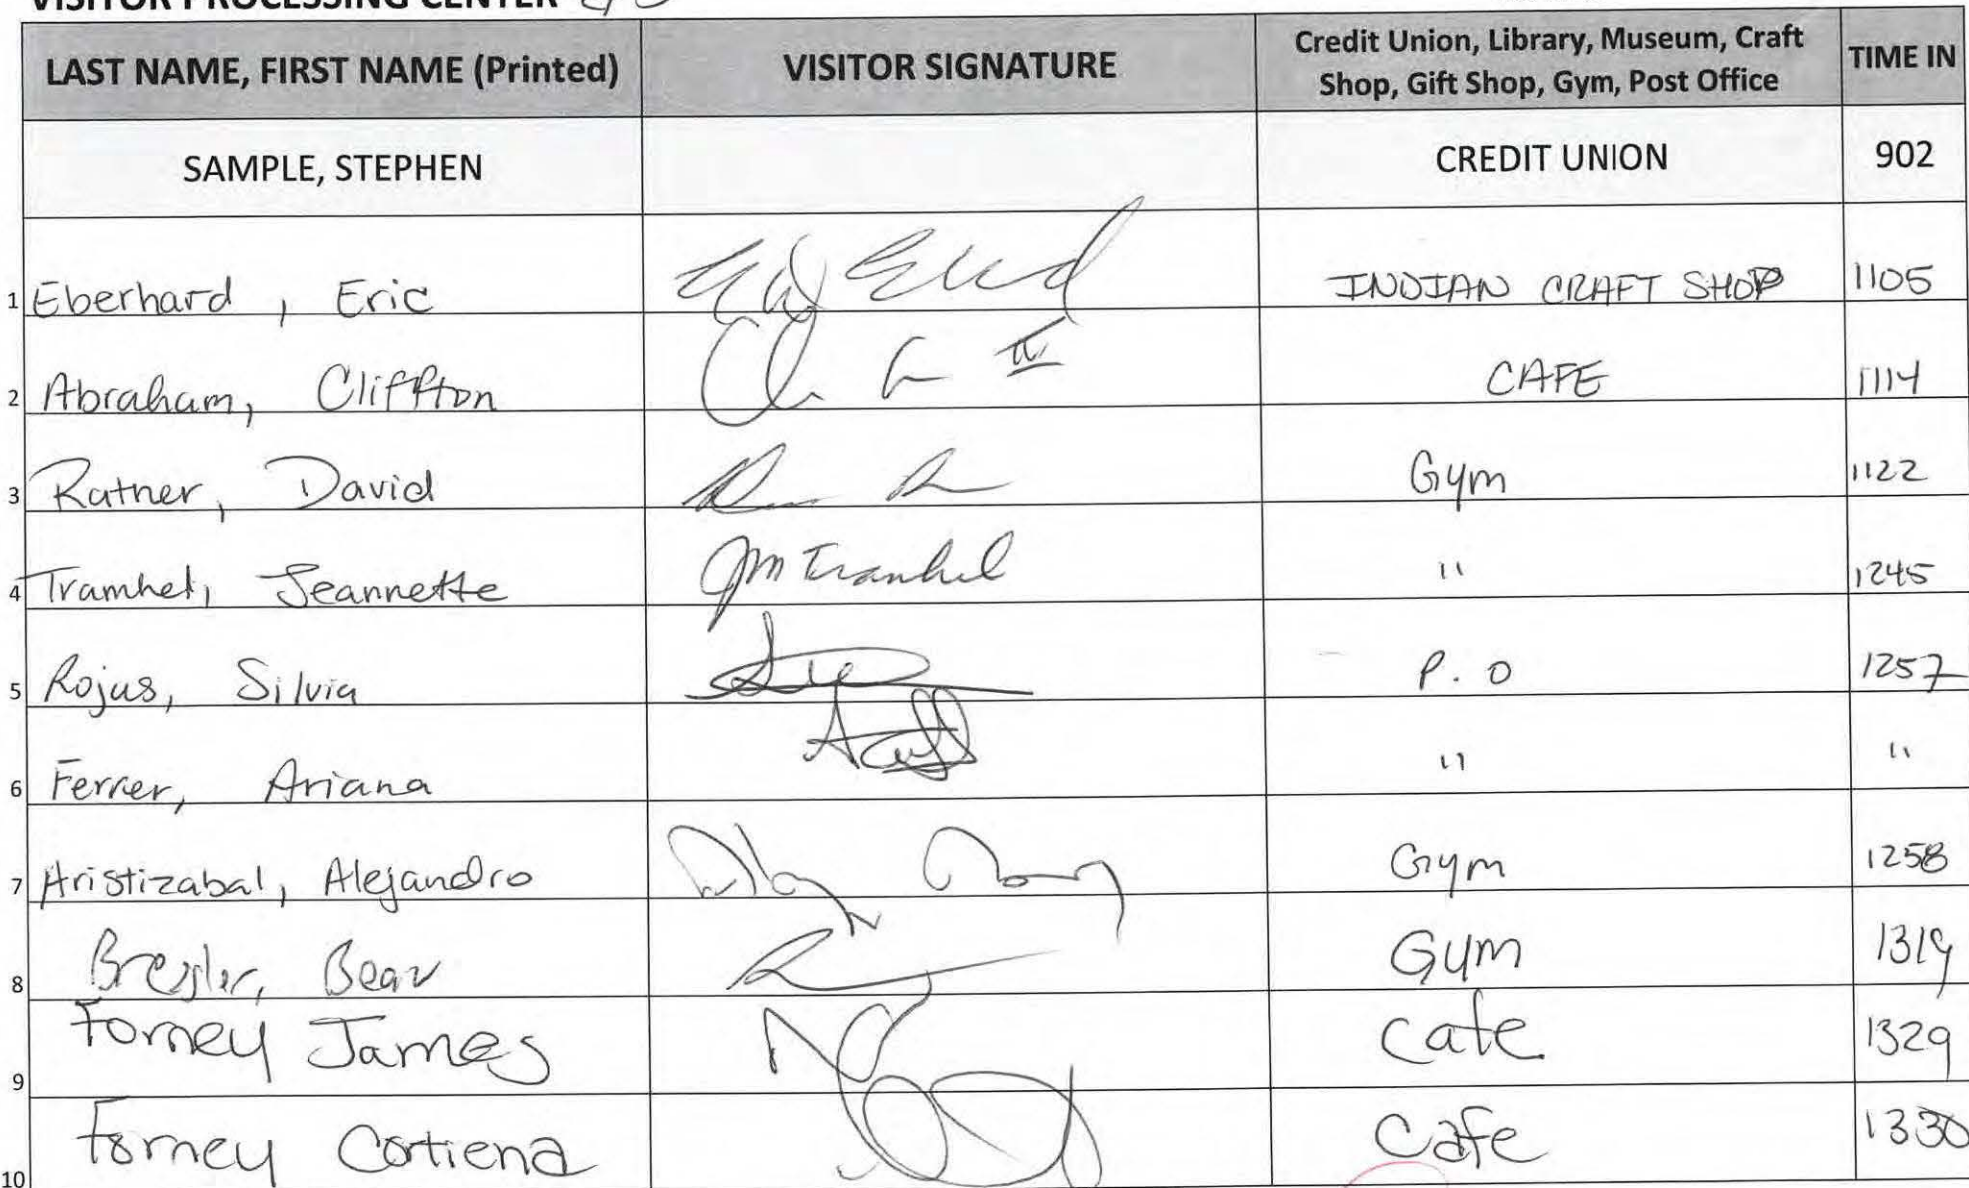 VISITOR PROCESSING CENTER
LAST NAME, FIRST NAME (Printed) VISITOR SIGNATURE Credit Union, Library, Museum, Craft Shop, Gift Shop, Gym, Post Office TIME IN
SAMPLE, STEPHEN CREDIT UNION 902
1 Eberhard, Eric INDIAN CRAFT SHOP 1105
2 Abraham, Cliffton II CAFE 1114
3 Ratner, David Gym 1122
4 Tramhel, Jeannette JM Tramhel " 1245
5 Rojas, Silvia P. O 1257
6 Ferrer, Ariana " "
7 Aristizabal, Alejandro Gym 1258
8 Bresler, Beav Gym 1319
9 Forney James Cafe 1329
10 Forney Cortiena Cafe 1330